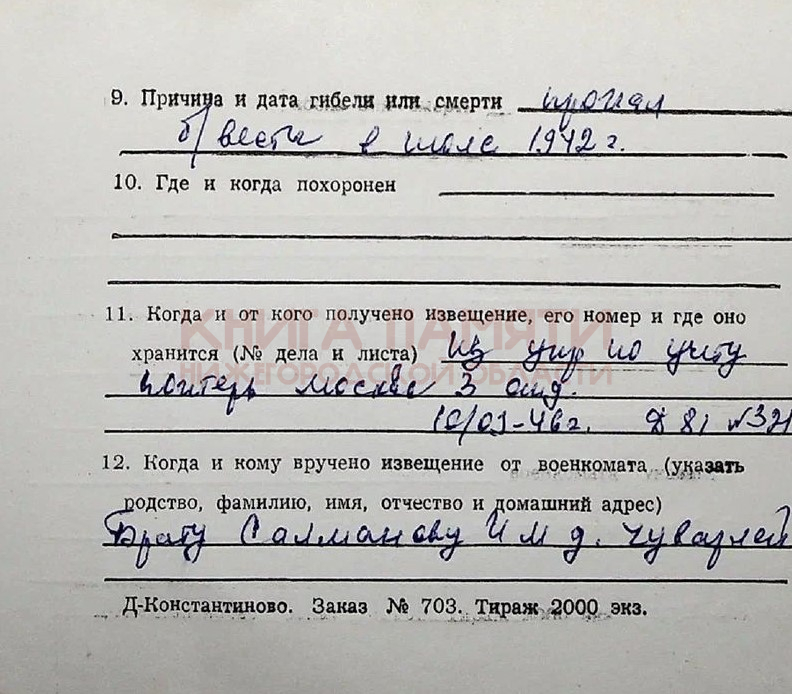 9. Причина и дата гибели или смерти пропал
б/вести в июле 1942 г.
10. Где и когда похоронен
11. Когда и от кого получено извещение, его номер и где оно
КНИГА ПАМЯТИ
хранится (№ дела и листа) из упр по учету
НИЖЕГОРОДСКОЙ ОБЛАСТИ
потерь Москва 3 отд.
10/03-46 г. Д 81 № 321
12. Когда и кому вручено извещение от военкомата (указать
родство, фамилию, имя, отчество и домашний адрес)
Брату Салманову И М д. Чуварлей
Д-Константиново. Заказ № 703. Тираж 2000 экз.